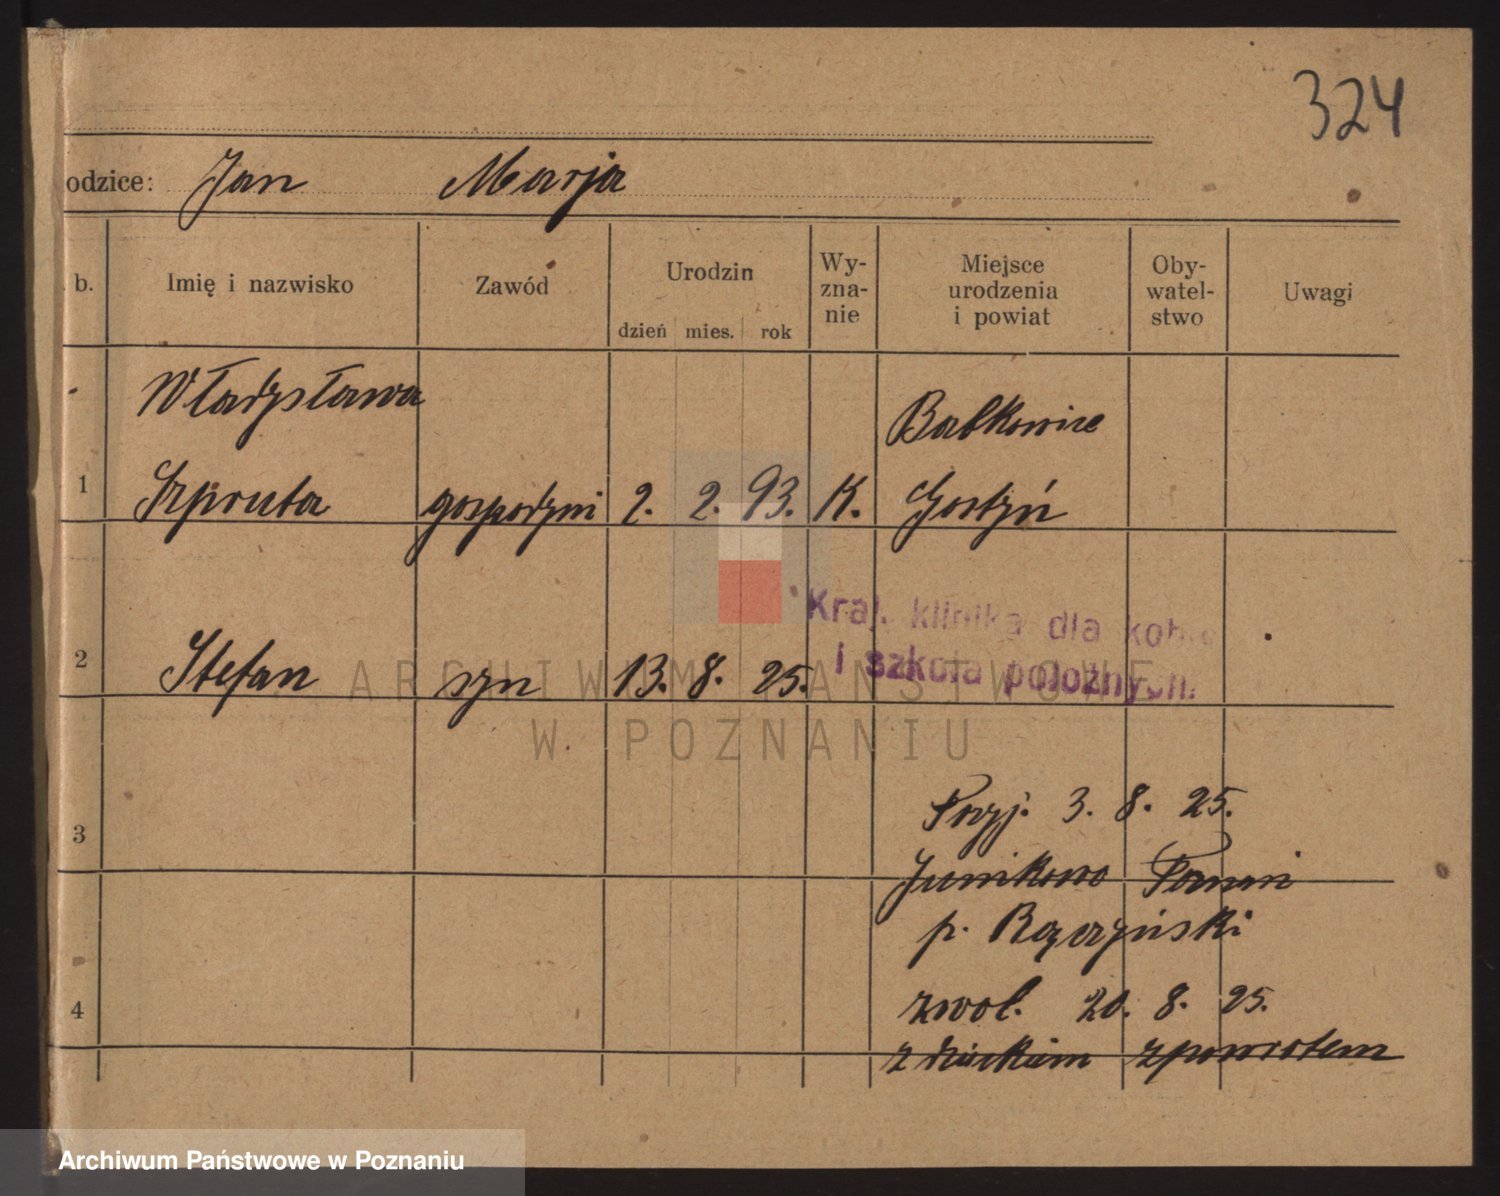 324
odzice: Jan Marja
b. Imię i nazwisko Zawód Urodzin Wy-
zna-
nie Miejsce
urodzenia
i powiat Oby-
watel-
stwo Uwagi
dzień mies. rok
Władysława Babkowice
1 Szpruta gospodyni 2. 2. 93. K. Gostyń
Kraj. klinika dla kobie
i szkoła położnych.
2 Stefan syn 13. 8. 25.
ARCHIWUM PAŃSTWOWE
W POZNANIU
3 Przyj. 3. 8. 25.
Junikowo
p.
4 zwol. 20. 8. 25.
z dzieckiem zpowrotem
Archiwum Państwowe w Poznaniu